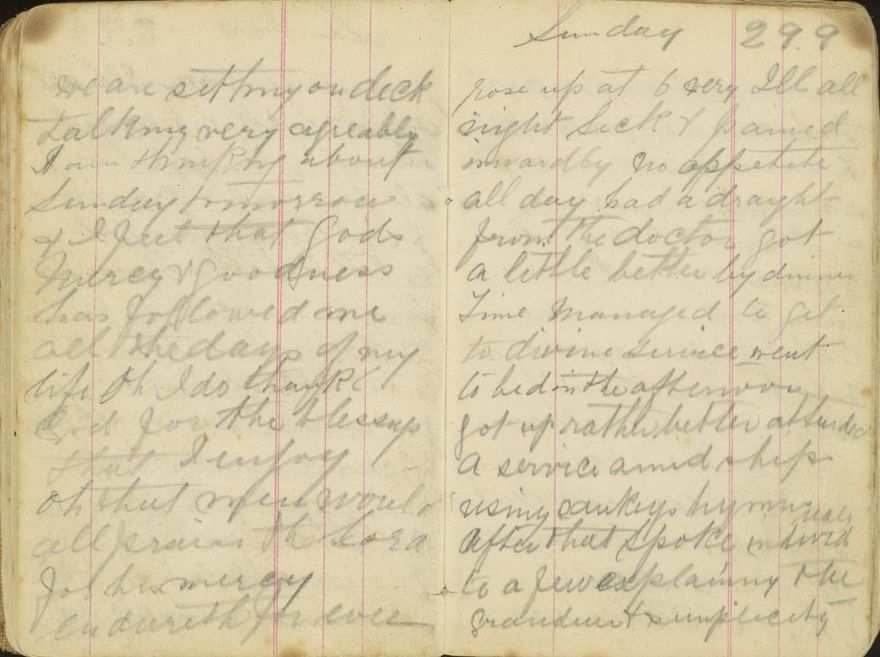 we are sitting on deck
talking very agreably
I am thinking about
Sunday tomorrow
& I feel that Gods
Mercy & goodness
has followed me
all the days of my
life Oh I do thank
God for the blessings
that I enjoy
oh that men would
all praise the Lord
for his mercy
endureth for ever
Sunday 29.9
rose up at 6 very Ill all
night Sick & pained
inwardly no appetite
all day had a draght
from the doctor got
a little better by dinner
time managed to get
to divine service went
to bed in the afternoon
got up rather better attended
a service amid ship
using sankeys hymns
after that spoke
to a few explaining the
grandeur & simplicity